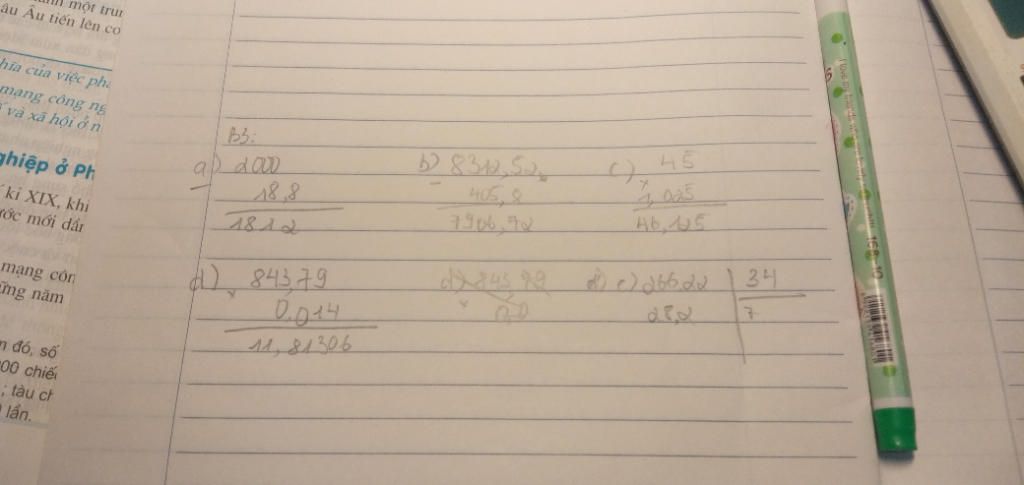 một trun
âu Âu tiến lên co
hĩa của việc phá
mạng công ng
và xã hội ở n
ghiệp ở Ph
kỉ XIX, khi
ớc mới dần
mạng côn
ững năm
n đó, số
00 chiếc
; tàu ch
lần.
B3:
a) 2000 b) 8312,52 c) 45
- 18,8 - 405,8 x 1,025
1812 7906,72 46,125
d) 843,79 d) 843,79 e) 266,22 34
x 0,014 x 0,0 28,2 7
11,81306